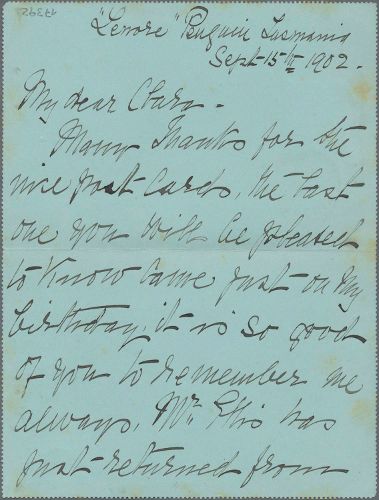 "Lenore" Penguin Tasmania
Sept 15th 1902.
My dear Clara.
Many thanks for the
nice post cards, the last
one you will be pleased
to know came just on my
birthday, it is so good
of you to remember me
always. Mr. Ellis has
just returned from